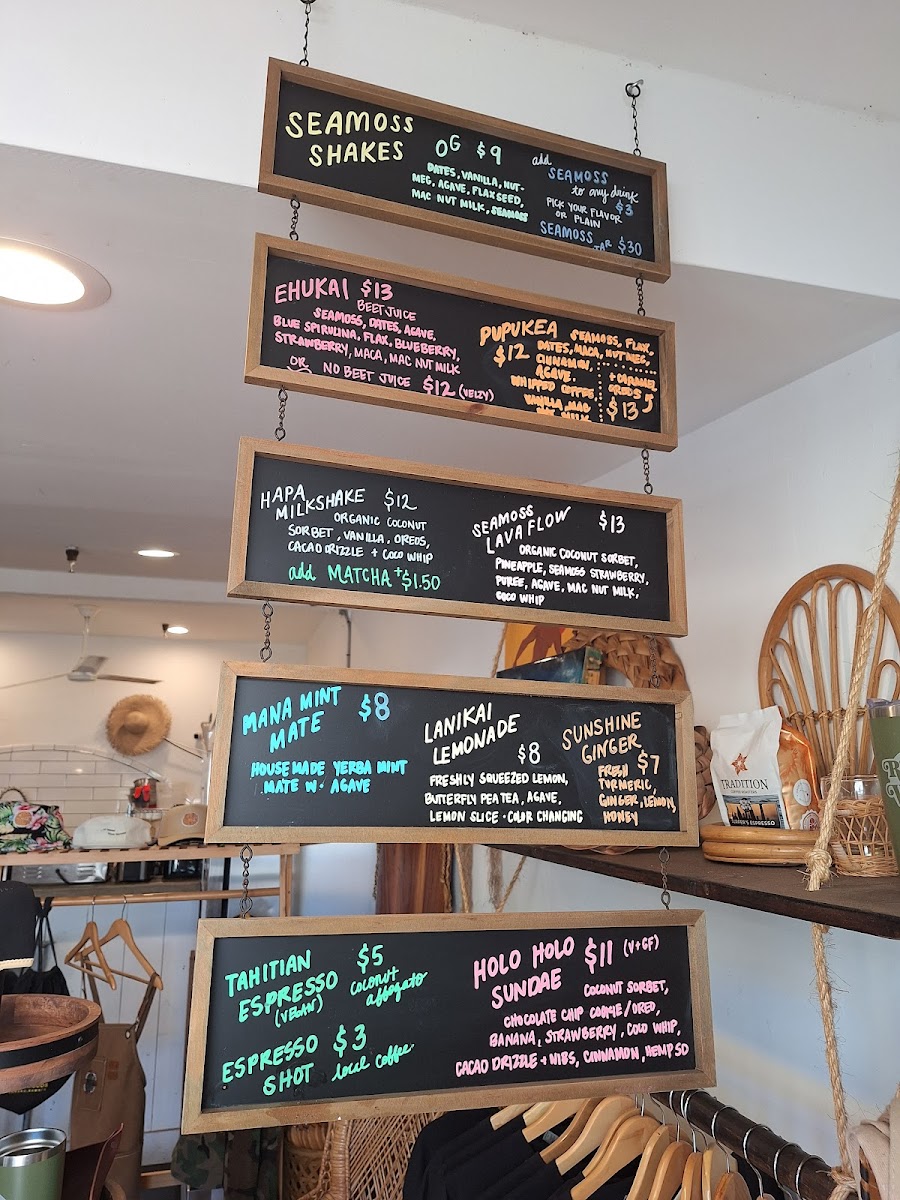 SEAMOSS
SHAKES
OG $9
DATES, VANILLA, NUT-
MEG, AGAVE, FLAXSEED,
MAC NUT MILK, SEAMOSS
add
SEAMOSS
to any drink
$3
PICK YOUR FLAVOR
OR PLAIN
SEAMOSS JAR $30
EHUKAI $13
BEET JUICE
SEAMOSS, DATES, AGAVE,
BLUE SPIRULINA, FLAX, BLUEBERRY,
STRAWBERRY, MACA, MAC NUT MILK
OR NO BEET JUICE $12 (VELZY)
PUPUKEA
$12
SEAMOSS, FLAX,
DATES, MACA, NUTMEG,
CINNAMON,
AGAVE,
WHIPPED COFFEE,
VANILLA, MAC
NUT MILK
+ CARAMEL
OREOS
$13
HAPA
MILKSHAKE $12
ORGANIC COCONUT
SORBET, VANILLA, OREOS,
CACAO DRIZZLE + COCO WHIP
add MATCHA +$1.50
SEAMOSS
LAVA FLOW $13
ORGANIC COCONUT SORBET,
PINEAPPLE, SEAMOSS STRAWBERRY,
PUREE, AGAVE, MAC NUT MILK,
COCO WHIP
MANA MINT
MATE $8
HOUSEMADE YERBA MINT
MATE W. AGAVE
LANIKAI
LEMONADE
$8
FRESHLY SQUEEZED LEMON,
BUTTERFLY PEA TEA, AGAVE,
LEMON SLICE · COLOR CHANGING
SUNSHINE
GINGER
$7
FRESH
TURMERIC,
GINGER, LEMON,
HONEY
TAHITIAN
ESPRESSO
(VEGAN)
$5
coconut
affogato
ESPRESSO
SHOT
$3
local coffee
HOLO HOLO
SUNDAE
$11 (V+GF)
COCONUT SORBET,
CHOCOLATE CHIP COOKIE/OREO,
BANANA, STRAWBERRY, COCO WHIP,
CACAO DRIZZLE + NIBS, CINNAMON, HEMP SD
TRADITION
COFFEE ROASTERS